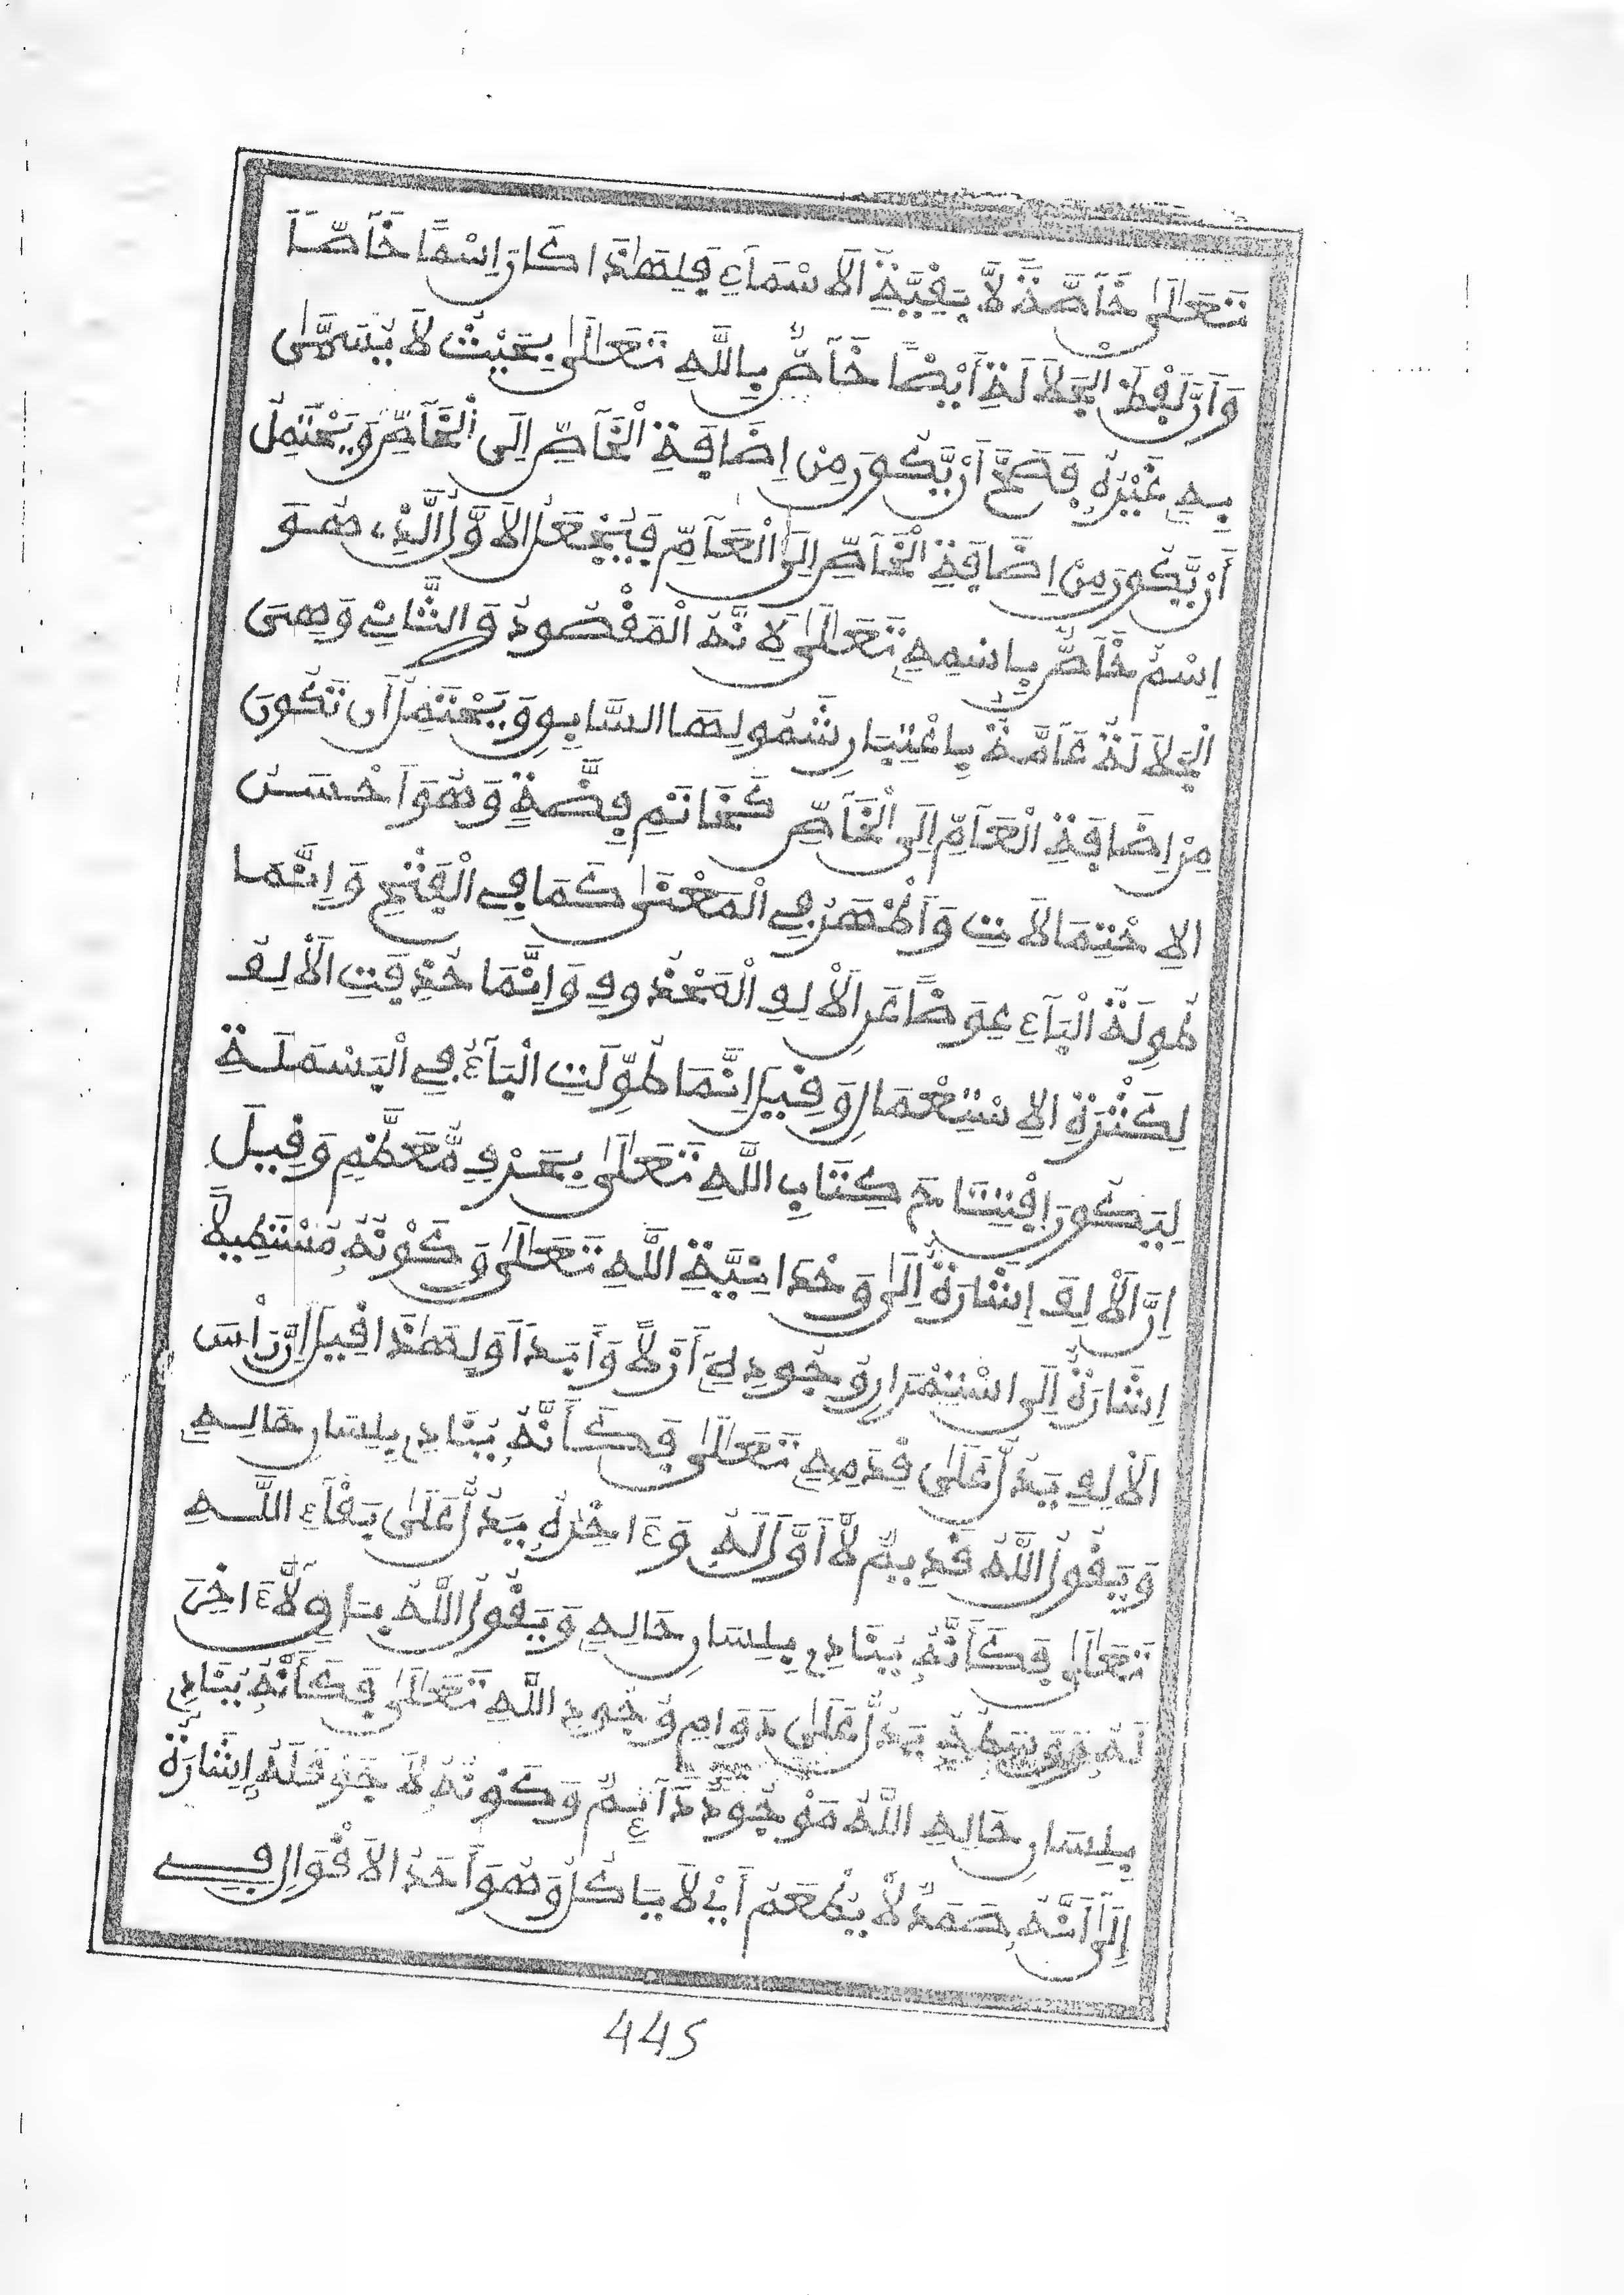 تَعَالَىٰ خَآصَّةً لَّا بَقِيَّةِ الْأَسْمَآءِ فَلِهَٰذَا كَانَ اِسْمًا خَآصًّا
وَأَنَّ لَفْظَ الْجَلَالَةِ أَيْضًا خَآصٌّ بِاللَّهِ تَعَالَىٰ بِحَيْثُ لَا يُسَمَّىٰ
بِهِ غَيْرُهُ فَصَحَّ أَنْ يَّكُونَ مِنْ إِضَافَةِ الْخَآصِّ إِلَى الْخَآصِّ وَيَحْتَمِلُ
أَنْ يَّكُونَ مِنْ اِضَافَةِ الْخَآصِّ إِلَى الْعَآمِّ فَيُجْعَلُ الْأَوَّلُ الَّذِي هُوَ
اِسْمٌ خَآصٌّ بِاسْمِهِ تَعَالَىٰ لِأَنَّهُ الْمَقْصُودُ وَالثَّانِي وَهِيَ
الْجَلَالَةُ عَآمَّةٌ بِاعْتِبَارِ شُمُولِهَا السَّابِقِ وَيَحْتَمِلُ أَن تَكُونَ
مِنْ اِضَافَةِ الْعَآمِّ إِلَى الْخَآصِّ كَخَاتَمِ فِضَّةٍ وَهُوَ أَحْسَنُ
الِاحْتِمَالَاتِ وَأَظْهَرُ فِي الْمَعْنَىٰ كَمَا فِي الْفَتْحِ وَإِنَّمَا
طُولَةُ الْبَآءِ عِوَضًا عَنِ الْأَلِفِ الْمَحْذُوفِ وَإِنَّمَا حُذِفَتِ الْأَلِفُ
لِكَثْرَةِ الِاسْتِعْمَالِ وَقِيلَ إِنَّمَا طُوِّلَتِ الْبَآءُ فِي الْبَسْمَلَةِ
لِيَكُونَ اِفْتِتَاحَ كِتَابِ اللَّهِ تَعَالَىٰ بِحَرْفٍ مُّعَظَّمٍ وَقِيلَ
إِنَّ الْأَلِفَ إِشَارَةٌ إِلَىٰ وَحْدَانِيَّةِ اللَّهِ تَعَالَىٰ وَكَوْنُهُ مُسْتَطِيلًا
إِشَارَةٌ إِلَى اسْتِمْرَارِ وُجُودِهِ أَزَلًا وَأَبَدًا وَلِهَٰذَا قِيلَ إِنَّ رَأْسَ
الْأَلِفِ يَدُلُّ عَلَىٰ قِدَمِهِ تَعَالَىٰ فَكَأَنَّهُ يُنَادِي بِلِسَانِ حَالِهِ
وَيَقُولُ اللَّهُ قَدِيمٌ لَّا أَوَّلَ لَهُ وَءَاخِرُهُ يَدُلُّ عَلَىٰ بَقَآءِ اللَّهِ
تَعَالَىٰ فَكَأَنَّهُ يُنَادِي بِلِسَانِ حَالِهِ وَيَقُولُ اللَّهُ بَاقٍ لَّا ءَاخِرَ
لَهُ وَوَسَطُهُ يَدُلُّ عَلَىٰ دَوَامِ وُجُودِ اللَّهِ تَعَالَىٰ فَكَأَنَّهُ يُنَادِي
بِلِسَانِ حَالِهِ اللَّهُ مَوْجُودٌ دَآئِمٌ وَكَوْنُهُ لَا جَوْفَ لَهُ إِشَارَةٌ
إِلَىٰ أَنَّهُ صَمَدٌ لَّا يُطْعَمُ أَيْ لَا يَاكُلُ وَهُوَ أَحَدُ الْأَقْوَالِ فِي
445